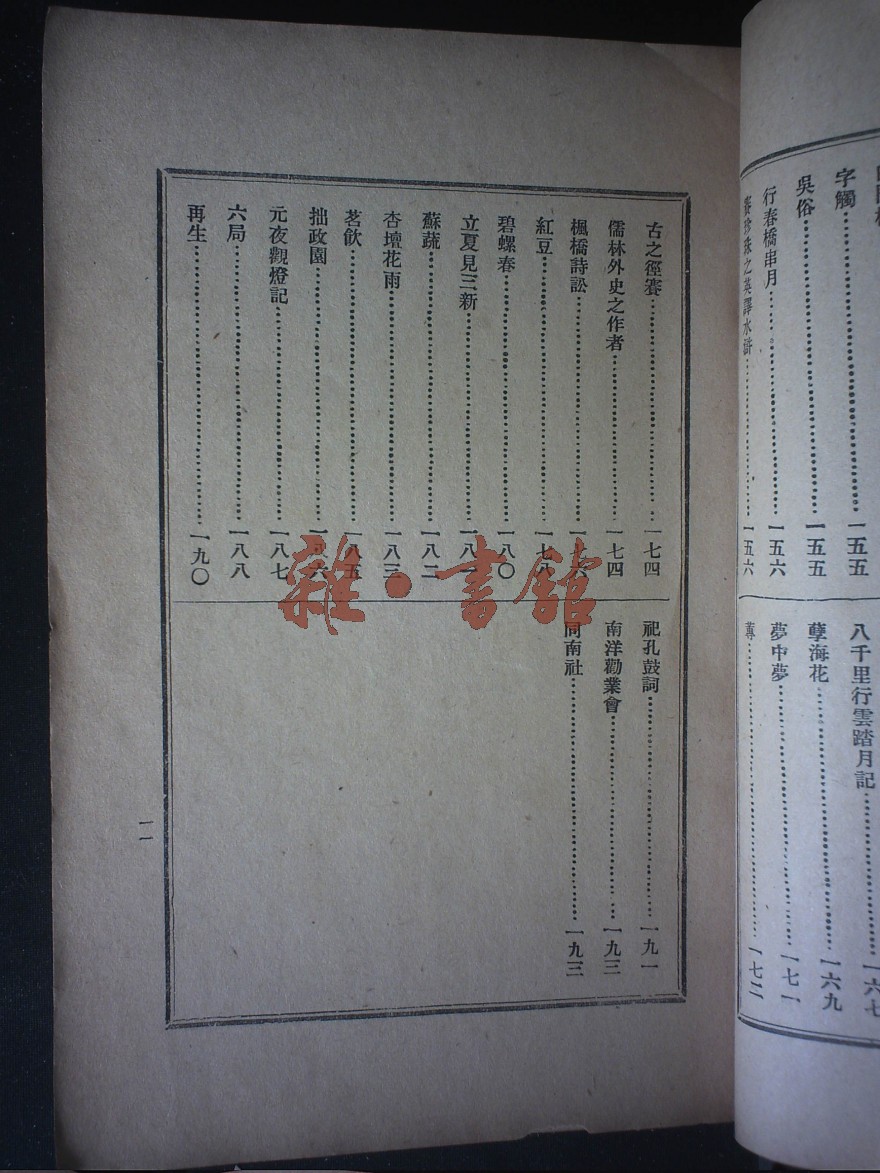 字觸⋯⋯一五五
吳俗⋯⋯一五五
行春橋串月⋯⋯一五六
賽珍珠之英譯水滸⋯⋯一五六
八千里行雲踏月記⋯⋯一六七
孽海花⋯⋯一六九
夢中夢⋯⋯一七一
蓴⋯⋯一七二
古之徑賽⋯⋯一七四
儒林外史之作者⋯⋯一七四
楓橋詩訟⋯⋯一七六
紅豆⋯⋯一七八
碧螺春⋯⋯一八〇
立夏見三新⋯⋯一八一
蘇蔬⋯⋯一八二
杏壇花雨⋯⋯一八三
茗飲⋯⋯一八五
拙政園⋯⋯一八六
元夜觀燈記⋯⋯一八七
六局⋯⋯一八八
再生⋯⋯一九〇
祀孔鼓詞⋯⋯一九一
南洋勸業會⋯⋯一九三
同南社⋯⋯一九三
一一
雜·書館